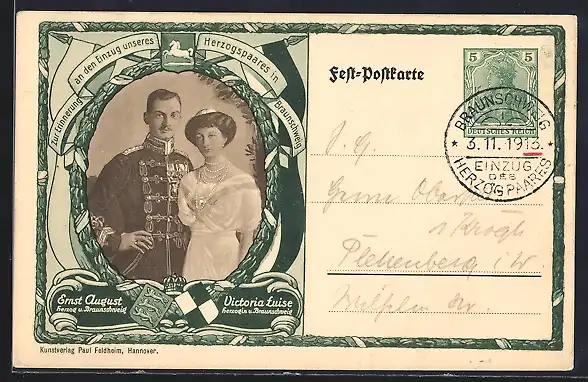 Zur Erinnerung an den Einzug unseres Herzogspaares in Braunschweig
Ernst August
Herzog v. Braunschweig
Victoria Luise
Herzogin v. Braunschweig
Kunstverlag Paul Feldheim, Hannover.
Fest-Postkarte
5 5
DEUTSCHES REICH
BRAUNSCHWEIG
* 3.11.1913. *
EINZUG
DES
HERZOGPAARES
Herrn
Plettenberg i/W